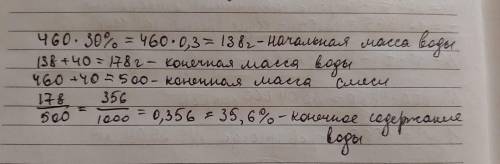 460·30% = 460·0,3 = 138г - начальная масса воды
138 + 40 = 178г - конечная масса воды
460 + 40 = 500 - конечная масса смеси
178/500 = 356/1000 = 0,356 = 35,6% - конечное содержание
воды